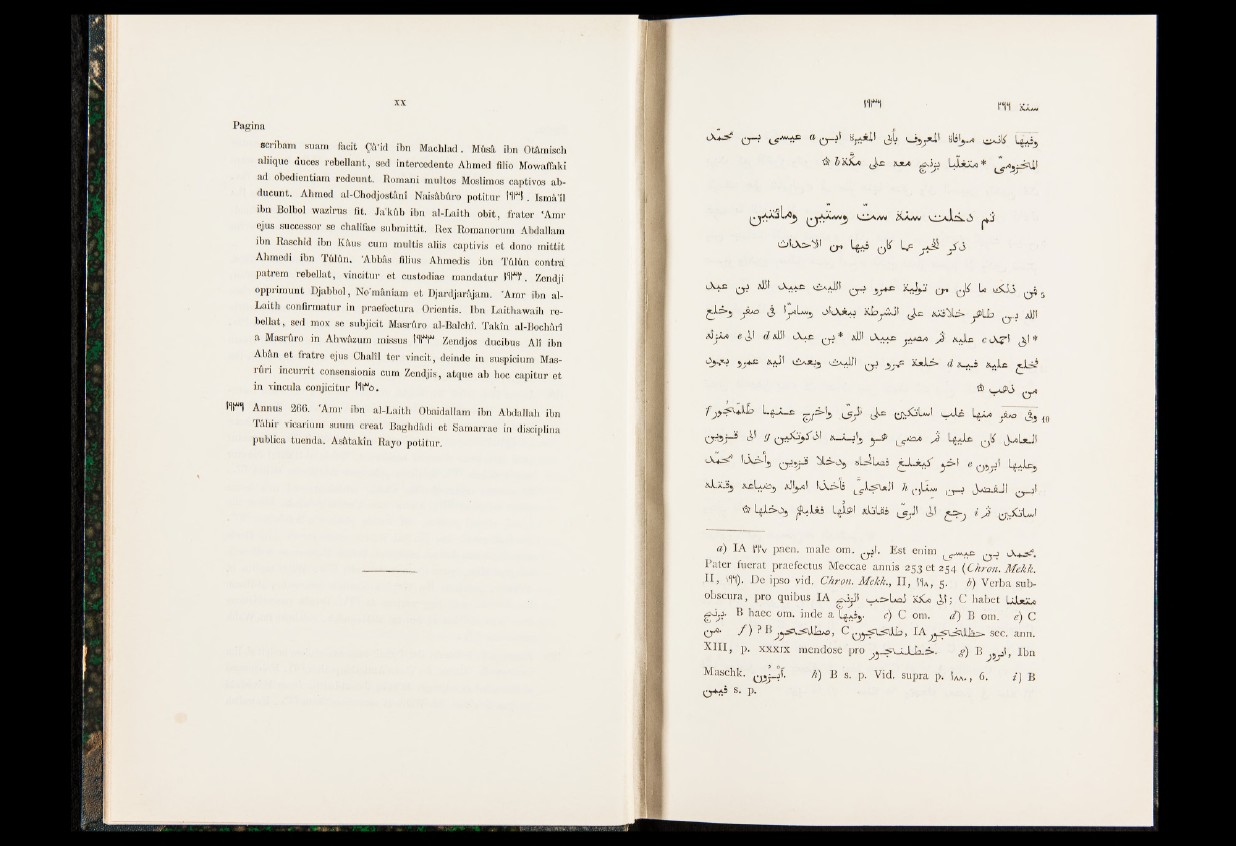 XX
Pagina
scribam suam facit Çâ'id ibn Machlad. Mûsâ ibn Otâmisch
aliique duces rebellant, sed intercedente Ahmed filio Mowaffaki
ad obedientiam redeunt. Romani multos Moslimos captivos ab-
ducunt. Ahmed al-Chodjostânî Naisâbûro potitur ١٩٣١. Ismâ'îl
ibn Bolbol wazirus fit. Ja'kûb ibn al-Laith obit, frater 'Amr
ejus successor se chalifae submittit. Rex Romanorum Abdallam
ibn Raschîd ibn Kâus cum multis aliis captivis et dono mittit
Ahmedi ibn Tûlûn. 'Abbâs filius Ahmedis ibn Tûlûn contra
patrem rebellat, vincitur et custodiae mandatur ١٩٣٢. Zendjî
opprimunt Djabbol, No'mânîam et Djardjarâjam. 'Amr ibn al-
Laith confirmatur in praefectura Orientis. Ibn Laithawaih re-
bellat, sed mox se subjicit Masrûro al-Balchî. Takîn al-Bochârî
a Masrûro in Ahwâzum missus ١٩٣٣ Zendjos ducibus Alî ibn
Abân et fratre ejus Chalîl ter vincit, deinde in suspicium Mas-
rûri incurrit consensionis cum Zendjis, atque ab hoc capitur et
in vincula conjicitur ١٩٣٥.
١٩٣٦ Annus 266. 'Amr ibn al-Laith Obaidallam ibn Abdallah ibn
Tâhir vicarium suum creat Baghdâdi et Samarrae in disciplina
publica tuenda. Asâtakîn Rayo potitur.
سنة ٢٦٦ ١٩٣٦
وفيها كانت موافاة المغيرة ابى المعروف بأبى المغيرة ابن a عيسى بن محمّد
المخزومىّ * متغلّبا بزنج معه على مكّة b ۞
ثم دخلت سنة ستّ وستّين ومائتين
ذكر الخبر عما كان فيها من الاحداث
فمن ذلك ما كان من تولية عمرو بن الليث عبيد الله بن عبد 5
الله بن طاهر خلافته على الشرطة ببغداد وسامرّا فى صفر وخلع
* الى احمد c عليه ثم مصير عبيد الله * بن عبد الله d الى e منزله
فخلع عليه فيه d خلعة عمرو بن الليث وبعث اليه عمرو بعمود
من ذهب ۞
وفى صفر منها غلب اساتكين على الرىّ واخرج عنها طلمجور f 10
العامل كان عليها ثم مضى هو وابنه اذكوتكين g الى قزوين
وعليها ابرون e اخو كيغلغ فصالحاه ودخلا قزوين واخذا محمّد
ابن الفضل بن سنان h العجلىّ فأخذا امواله وضياعه وقتله
اساتكين ثم i رجع الى الرىّ فقاتله اهلها فغلبهم ودخلها ۞
a) IA ٢٢٧ paen. male om. ابن. Est enim محمد بن عيسى.
Pater fuerat praefectus Meccae annis 253 et 254 (Chron. Mekk.
II, ١٩٦). De ipso vid. Chron. Mekk., II, ١٩٨, 5. b) Verba sub-
obscura, pro quibus IA الى مكة لصاحب الزنج; C habet متغلبا
بزنج. B haec om. inde a وفيها. c) C om. d) B om. e) C
من. f) ? B, C, IA sec. ann.
XIII, p. XXXIX mendose pro. g) B ابرور, Ibn
Maschk. أَبْرُون. h) B s. p. Vid. supra p. ١٨٨٠, 6. i) B
فيمن s. p.